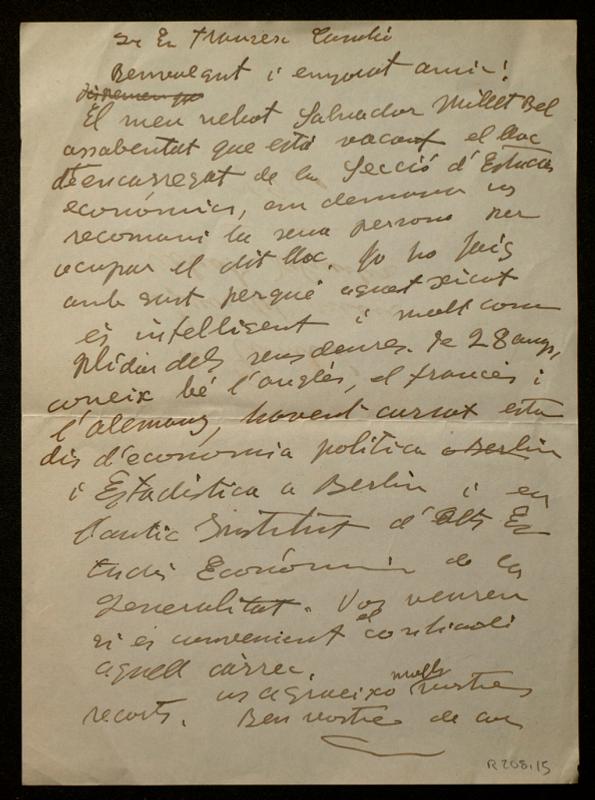 Sr En Francesc Candi
Benvolgut i enyorat amic!
El meu nebot Salvador Millet Bel
assabentat que està vacant el lloc
d'encarregat de la Secció d'Estudis
econòmics, em demana us
recomani la seva persona per
ocupar el dit lloc. Jo ho faig
amb gust perquè aquest xicot
és intelligent i molt com
plidor dels seus deures. Te 28 anys,
coneix bé l'anglès, el francès i
l'alemany, havent cursat estu
dis d'economia política a Berlin
i Estadística a Berlin i en
l'antic Institut d'Alts Es
tudis Econòmics de la
Generalitat. Vos veureu
si és convenient el confiar-li
aquell càrrec.
us agraeixo molt vostres
records. Ben vostre de cor
R.208.15